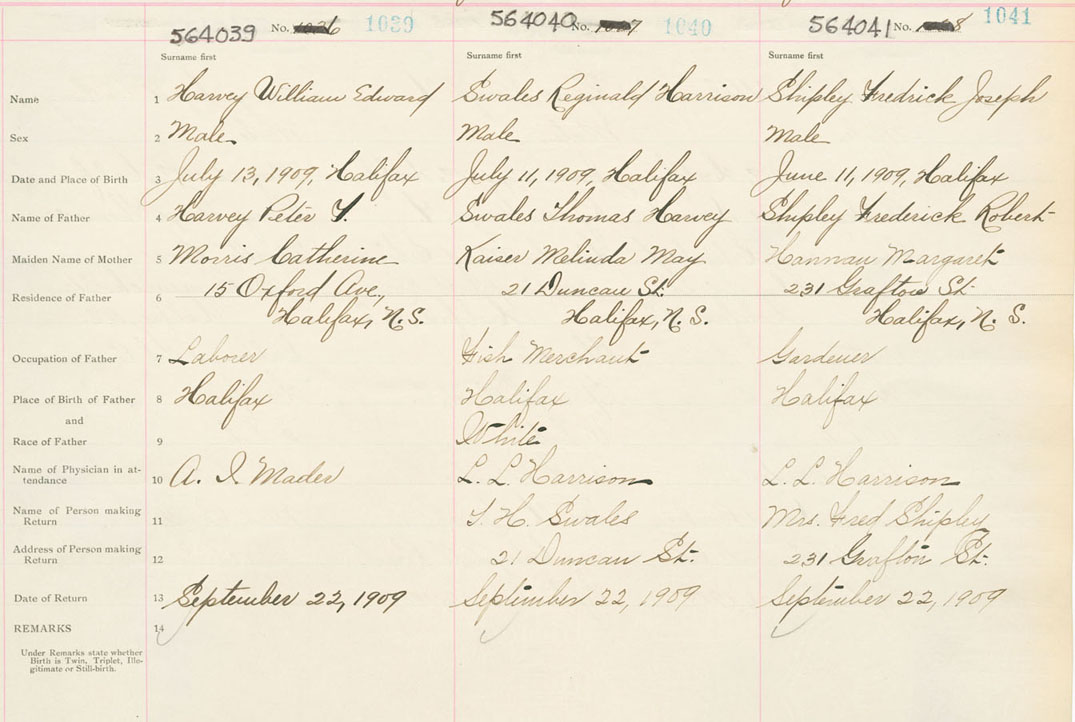 564039 No. 1039 564040 No. 1040 564041 No. 1041
Surname first Surname first Surname first
Name 1 Harvey William Edward Swales Reginald Harrison Shipley Fredrick Joseph
Sex 2 Male Male Male
Date and Place of Birth 3 July 13, 1909, Halifax July 11, 1909, Halifax June 11, 1909, Halifax
Name of Father 4 Harvey Peter F. Swales Thomas Harvey Shipley Frederick Robert
Maiden Name of Mother 5 Morris Catherine Kaiser Melinda May Hannan Margaret
Residence of Father 6 15 Oxford Ave., 21 Duncan St. 231 Grafton St.
Halifax, N.S. Halifax, N.S. Halifax, N.S.
Occupation of Father 7 Laborer Fish Merchant Gardener
Place of Birth of Father 8 Halifax Halifax Halifax
and
Race of Father 9 White
Name of Physician in at-
tendance 10 A. I. Mader L. L. Harrison L. L. Harrison
Name of Person making
Return 11 T. H. Swales Mrs. Fred Shipley
Address of Person making
Return 12 21 Duncan St. 231 Grafton St.
Date of Return 13 September 22, 1909 September 22, 1909 September 22, 1909
REMARKS 14
Under Remarks state whether
Birth is Twin, Triplet, Ille-
gitimate or Still-birth.